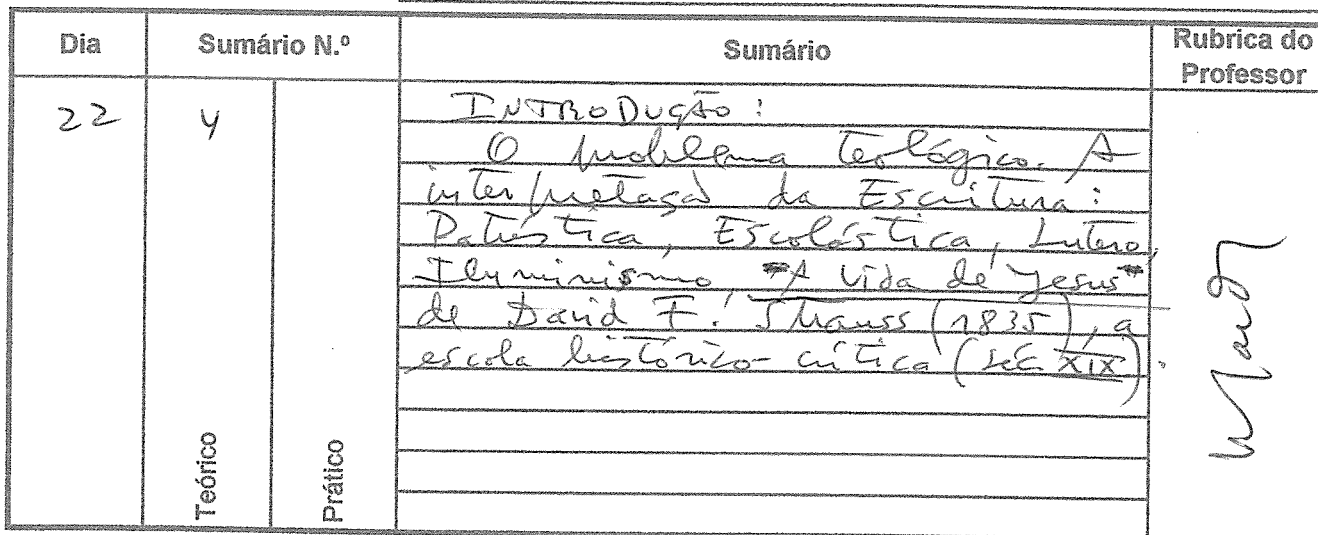 Dia Sumário N.º Sumário Rubrica do Professor
22 4
INTRODUÇÃO:
O problema teológico. A
interpretação da Escritura:
Patrística, Escolástica, Lutero,
Iluminismo "A vida de Jesus"
de David F. Strauss (1835), a
escola histórico-crítica (séc XIX).
Teórico
Prático